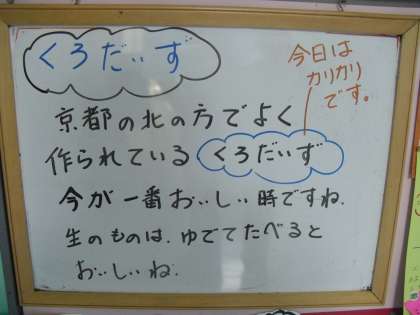 くろだいず
今日は
カリカリ
です。
京都の北の方でよく
作られている くろだいず
今が一番おいしい時ですね.
生のものは.ゆでてたべると
おいしいね.